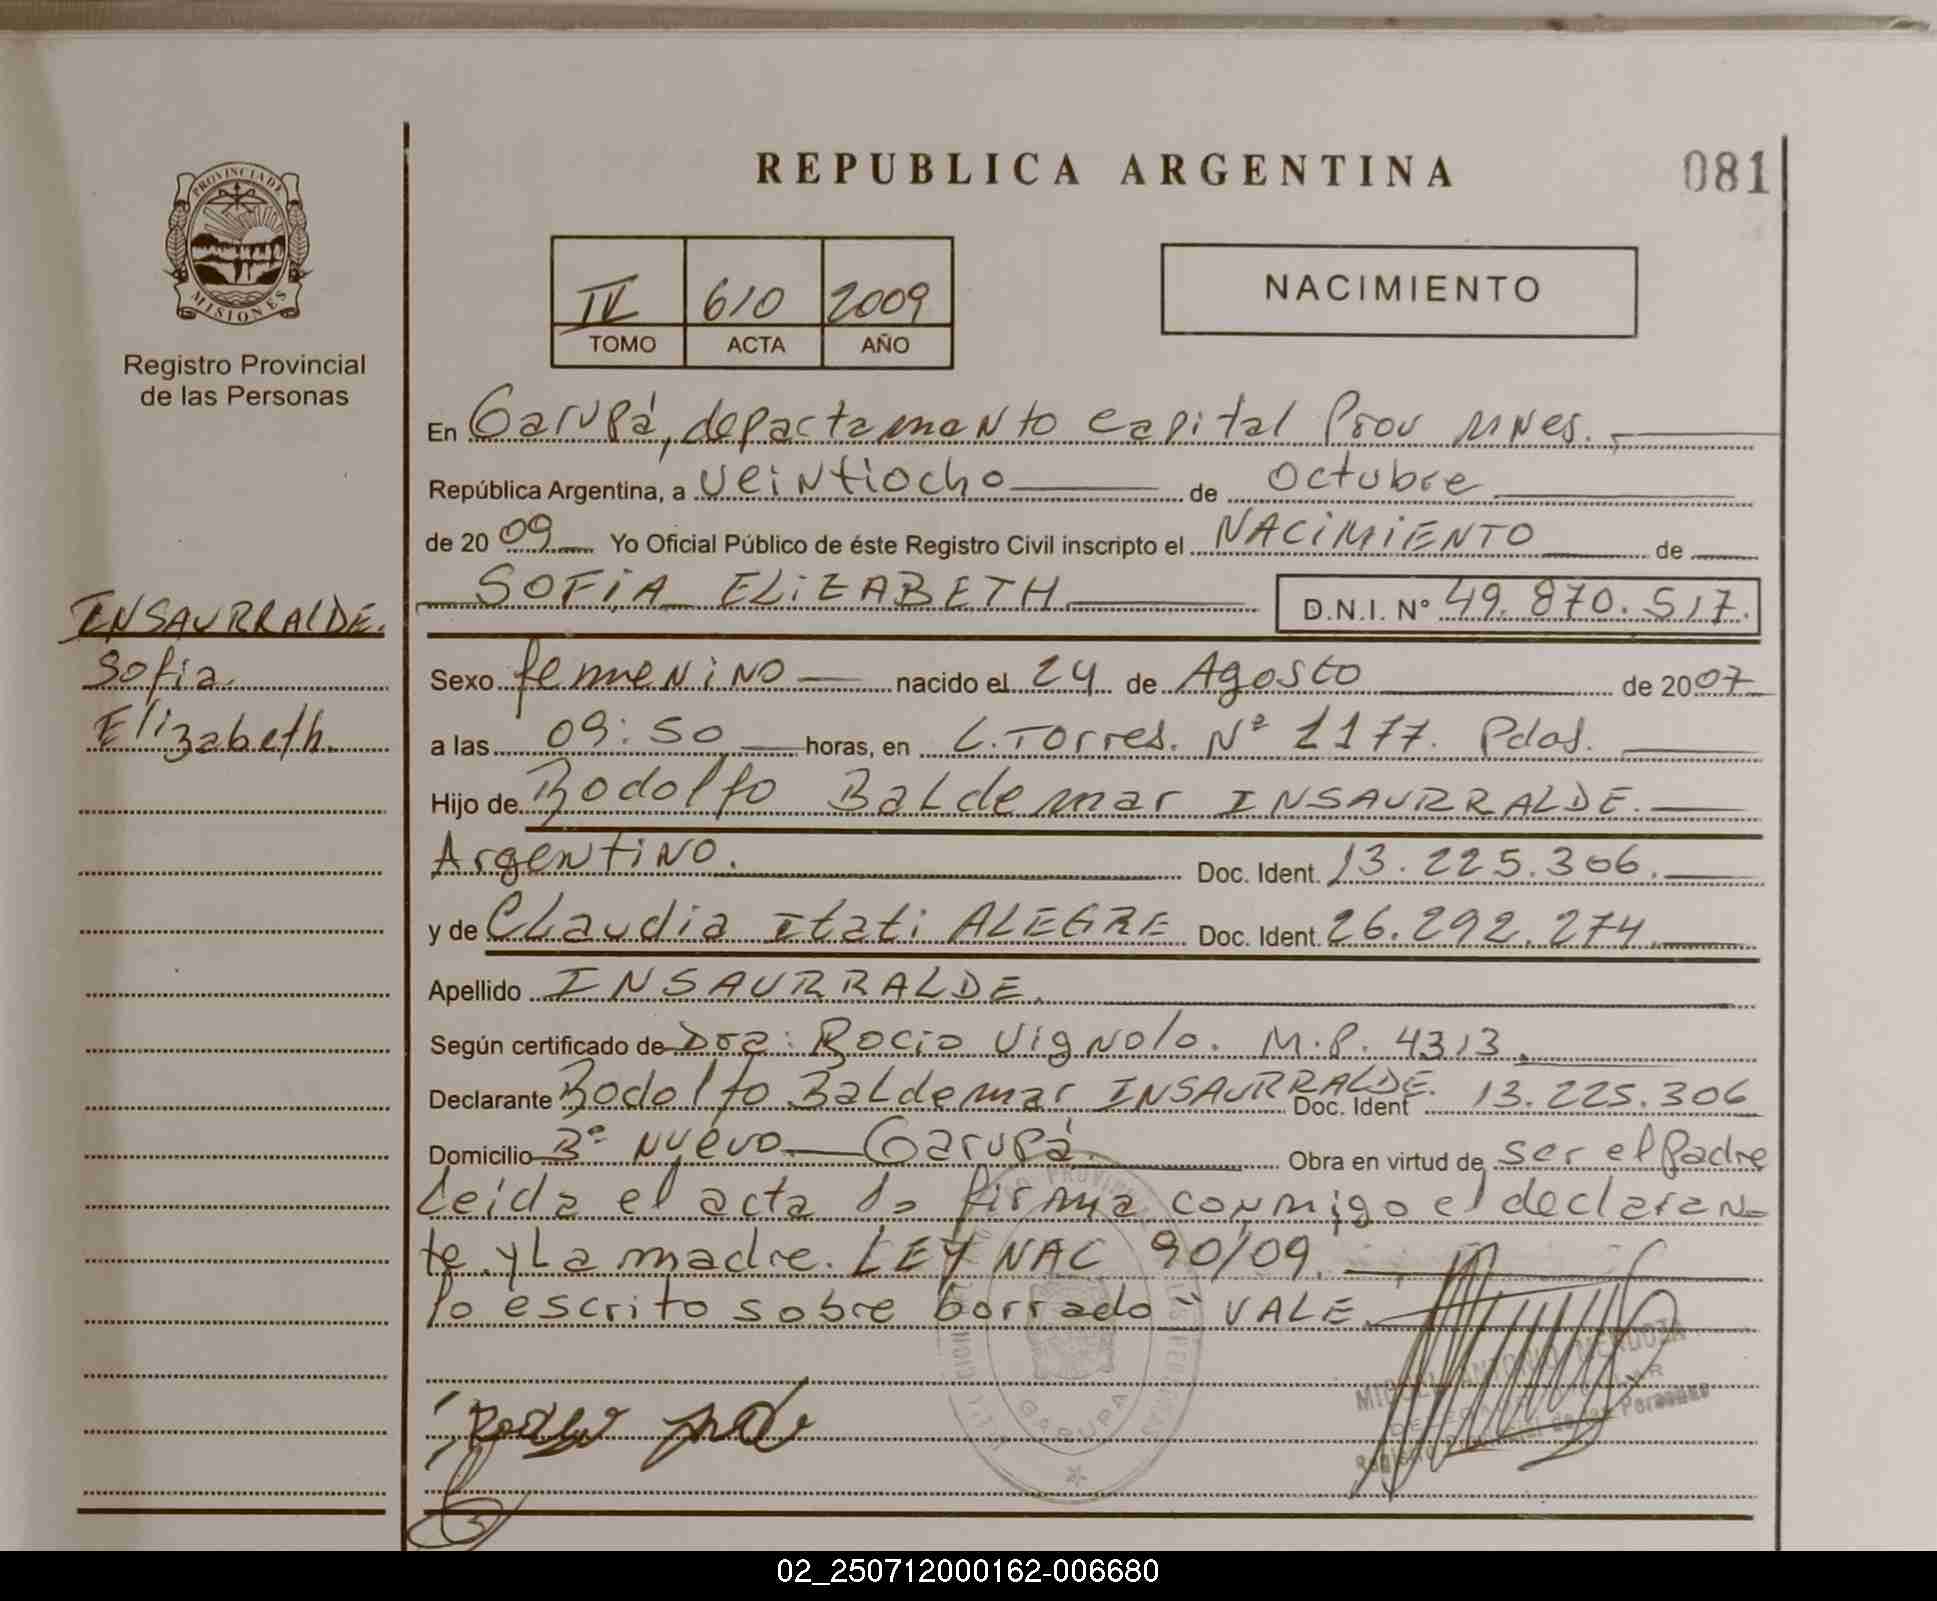 REPUBLICA ARGENTINA
081
PROVINCIA DE
MISIONES
Registro Provincial
de las Personas
IV 610 2009
TOMO ACTA AÑO
NACIMIENTO
En Garupá, departamento Capital Prov Mnes.
República Argentina, a veintiocho de Octubre
de 2009 Yo Oficial Público de éste Registro Civil inscripto el NACIMIENTO de
SOFIA ELIZABETH D.N.I. N° 49.870.517.
INSAURRALDE.
Sofia
Elizabeth.
Sexo femenino nacido el 24 de Agosto de 2007
a las 09:50 horas, en L. Torres. Nº 1177. Pdas.
Hijo de Rodolfo Baldemar INSAURRALDE.
Argentino. Doc. Ident. 13.225.306.
y de Claudia Itati ALEGRE Doc. Ident. 26.292.274.
Apellido INSAURRALDE.
Según certificado de Dra: Rocio Vignolo. M.P. 4313.
Declarante Rodolfo Baldemar INSAURRALDE. Doc. Ident 13.225.306
Domicilio Bº Nuevo Garupá. Obra en virtud de ser el Padre
Leida el acta la firma conmigo el declaran-
te y La madre. LEY NAC 90/09.
lo escrito sobre borrado - VALE.
GARUPA
MIGUEL ANTONIO MENDOZA
Registro Provincial de las Personas
02_250712000162-006680